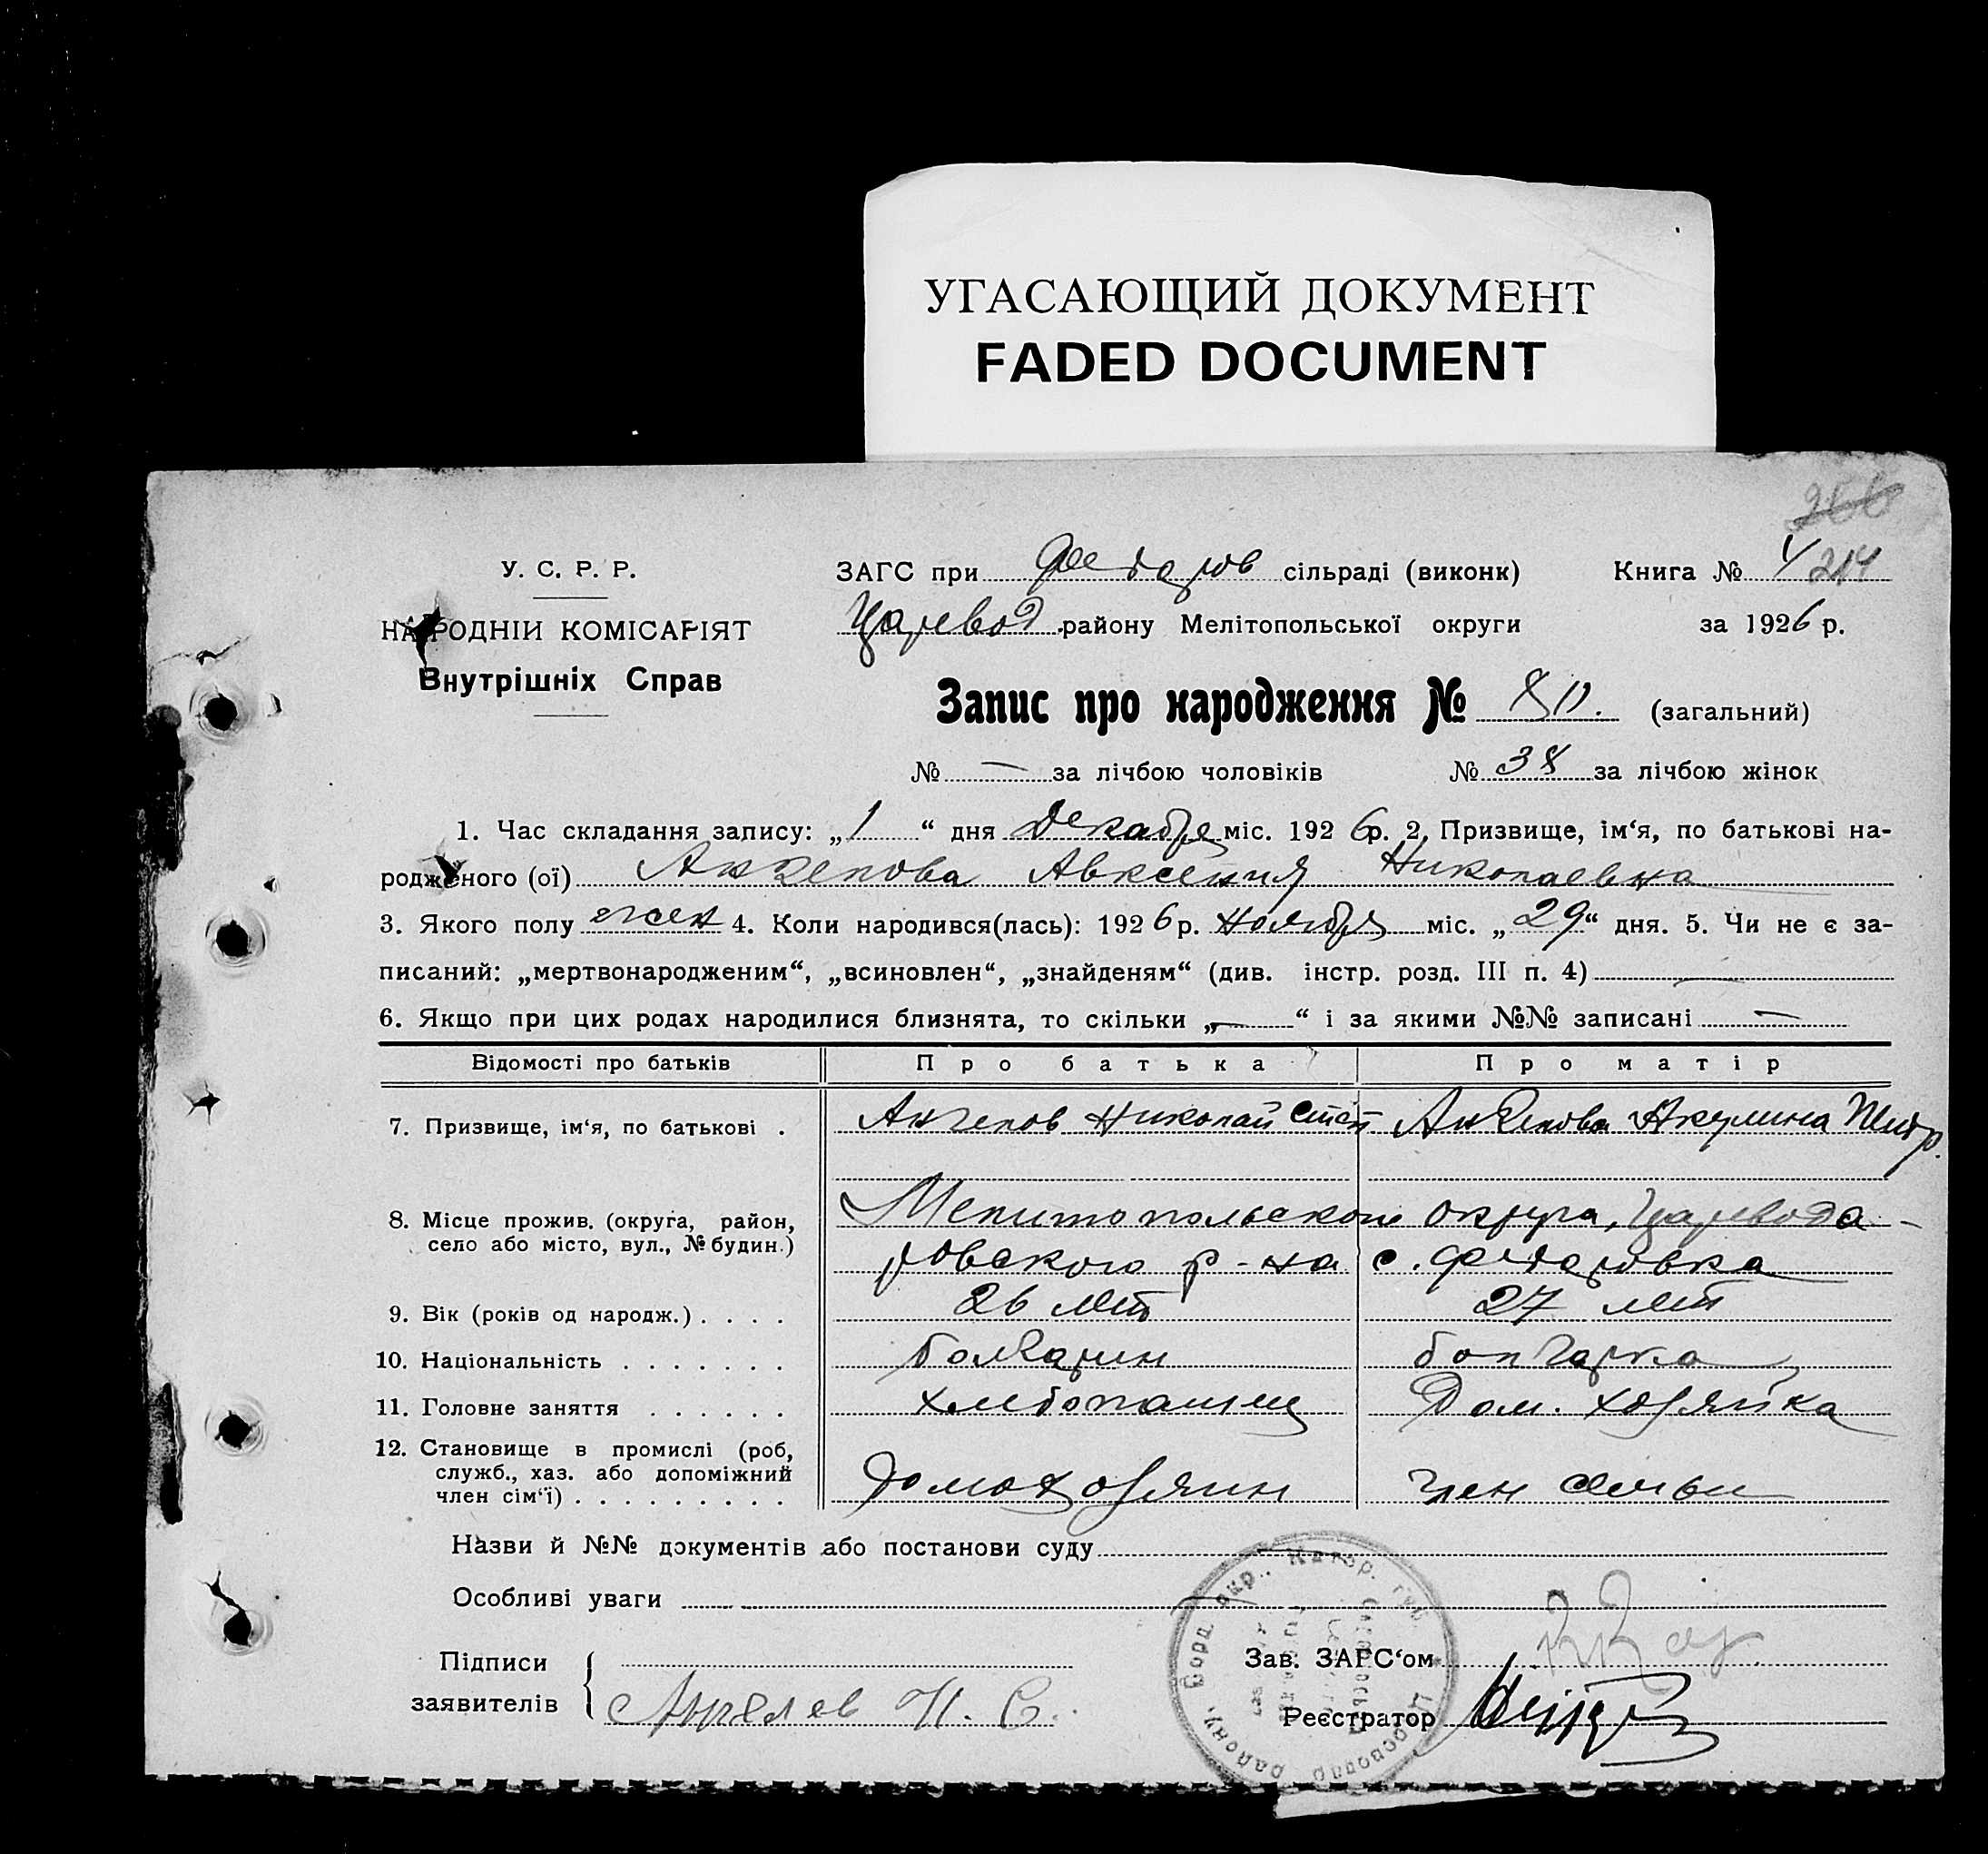 УГАСАЮЩИЙ ДОКУМЕНТ
FADED DOCUMENT
266
У. С. Р. Р.
ЗАГС при Федоров сільраді (виконк)
Книга № 214
НАРОДНІЙ КОМІСАРІЯТ
Царевод. району Мелітопольської округи
за 1926 р.
Внутрішніх Справ
Запис про народження № 80. (загальний)
№ — за лічбою чоловіків № 38 за лічбою жінок
1. Час складання запису: „1“ дня Декабря міс. 1926 р. 2. Призвище, ім‘я, по батькові на-
родженого (ої) Ангелова Авксения Николаевна
3. Якого полу жен 4. Коли народився(лась): 1926 р. Ноября міс. „29“ дня. 5. Чи не є за-
писаний: „мертвонародженим“, „всиновлен“, „знайденям“ (див. інстр. розд. III п. 4) —
6. Якщо при цих родах народилися близнята, то скільки „—“ і за якими №№ записані —
Відомості про батьків
Про батька
Про матір
7. Призвище, ім‘я, по батькові .
Ангелов Николай Степ
Ангелова Акулина Петр.
8. Місце прожив. (округа, район,
село або місто, вул., № будин.)
Мелитопольского округа, Царевода-
ровского р-на с. Федоровка
9. Вік (років од народж.) . . . .
26 лет
27 лет
10. Національність . . . . . . .
болгарин
болгарка
11. Головне заняття . . . . . .
хлебопашец
Дом. хозяйка
12. Становище в промислі (роб,
служб., хаз. або допоміжний
член сім‘ї) . . . . . . . . .
домохозяин
член семьи
Назви й №№ документів або постанови суду
Особливі уваги
Підписи
заявителів
Ангелов Н. С.
Зав. ЗАГС‘ом
Реєстратор